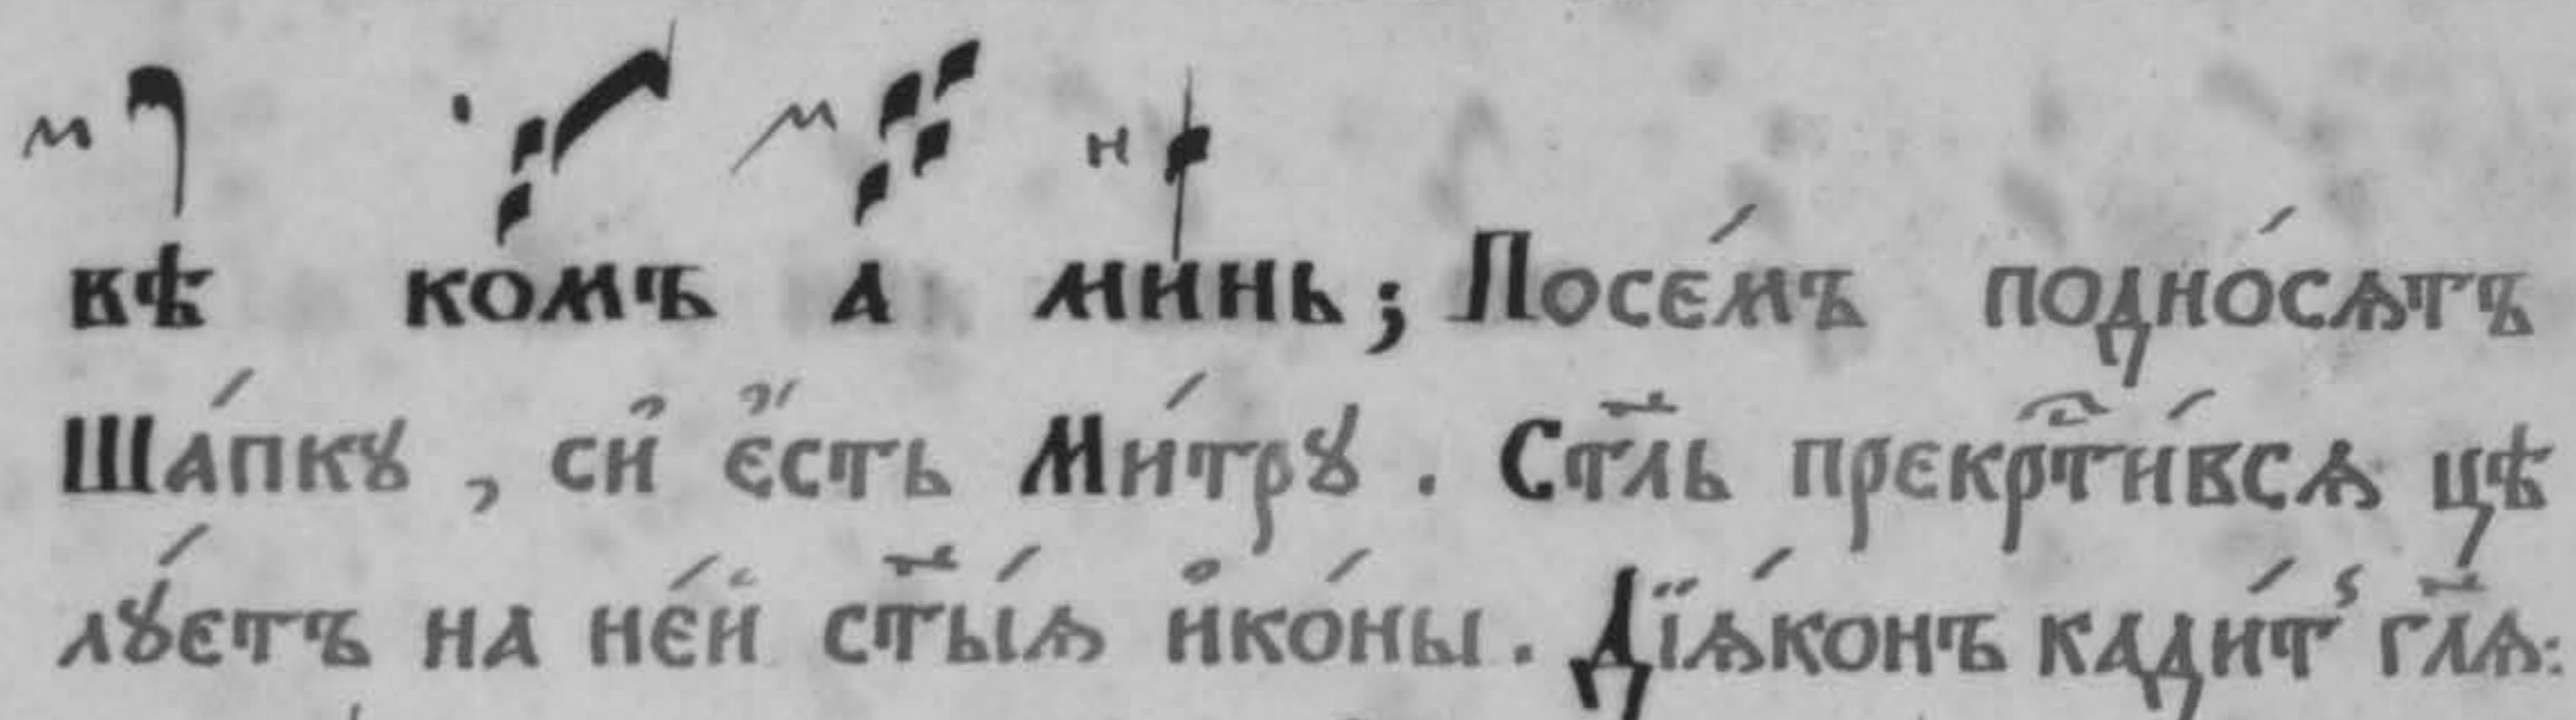 вѣ комъ а минь; Посе́мъ подно́сѧтъ
Ша́пкꙋ, си҆̀ є҆́сть Ми́трꙋ. Ст҃ль прекрⷭ҇ти́всѧ цѣ
лꙋ́етъ на не́й ст҃ы́ѧ и҆ко́ны. Дїѧ́конъ кади́тꙿ гл҃ѧ: